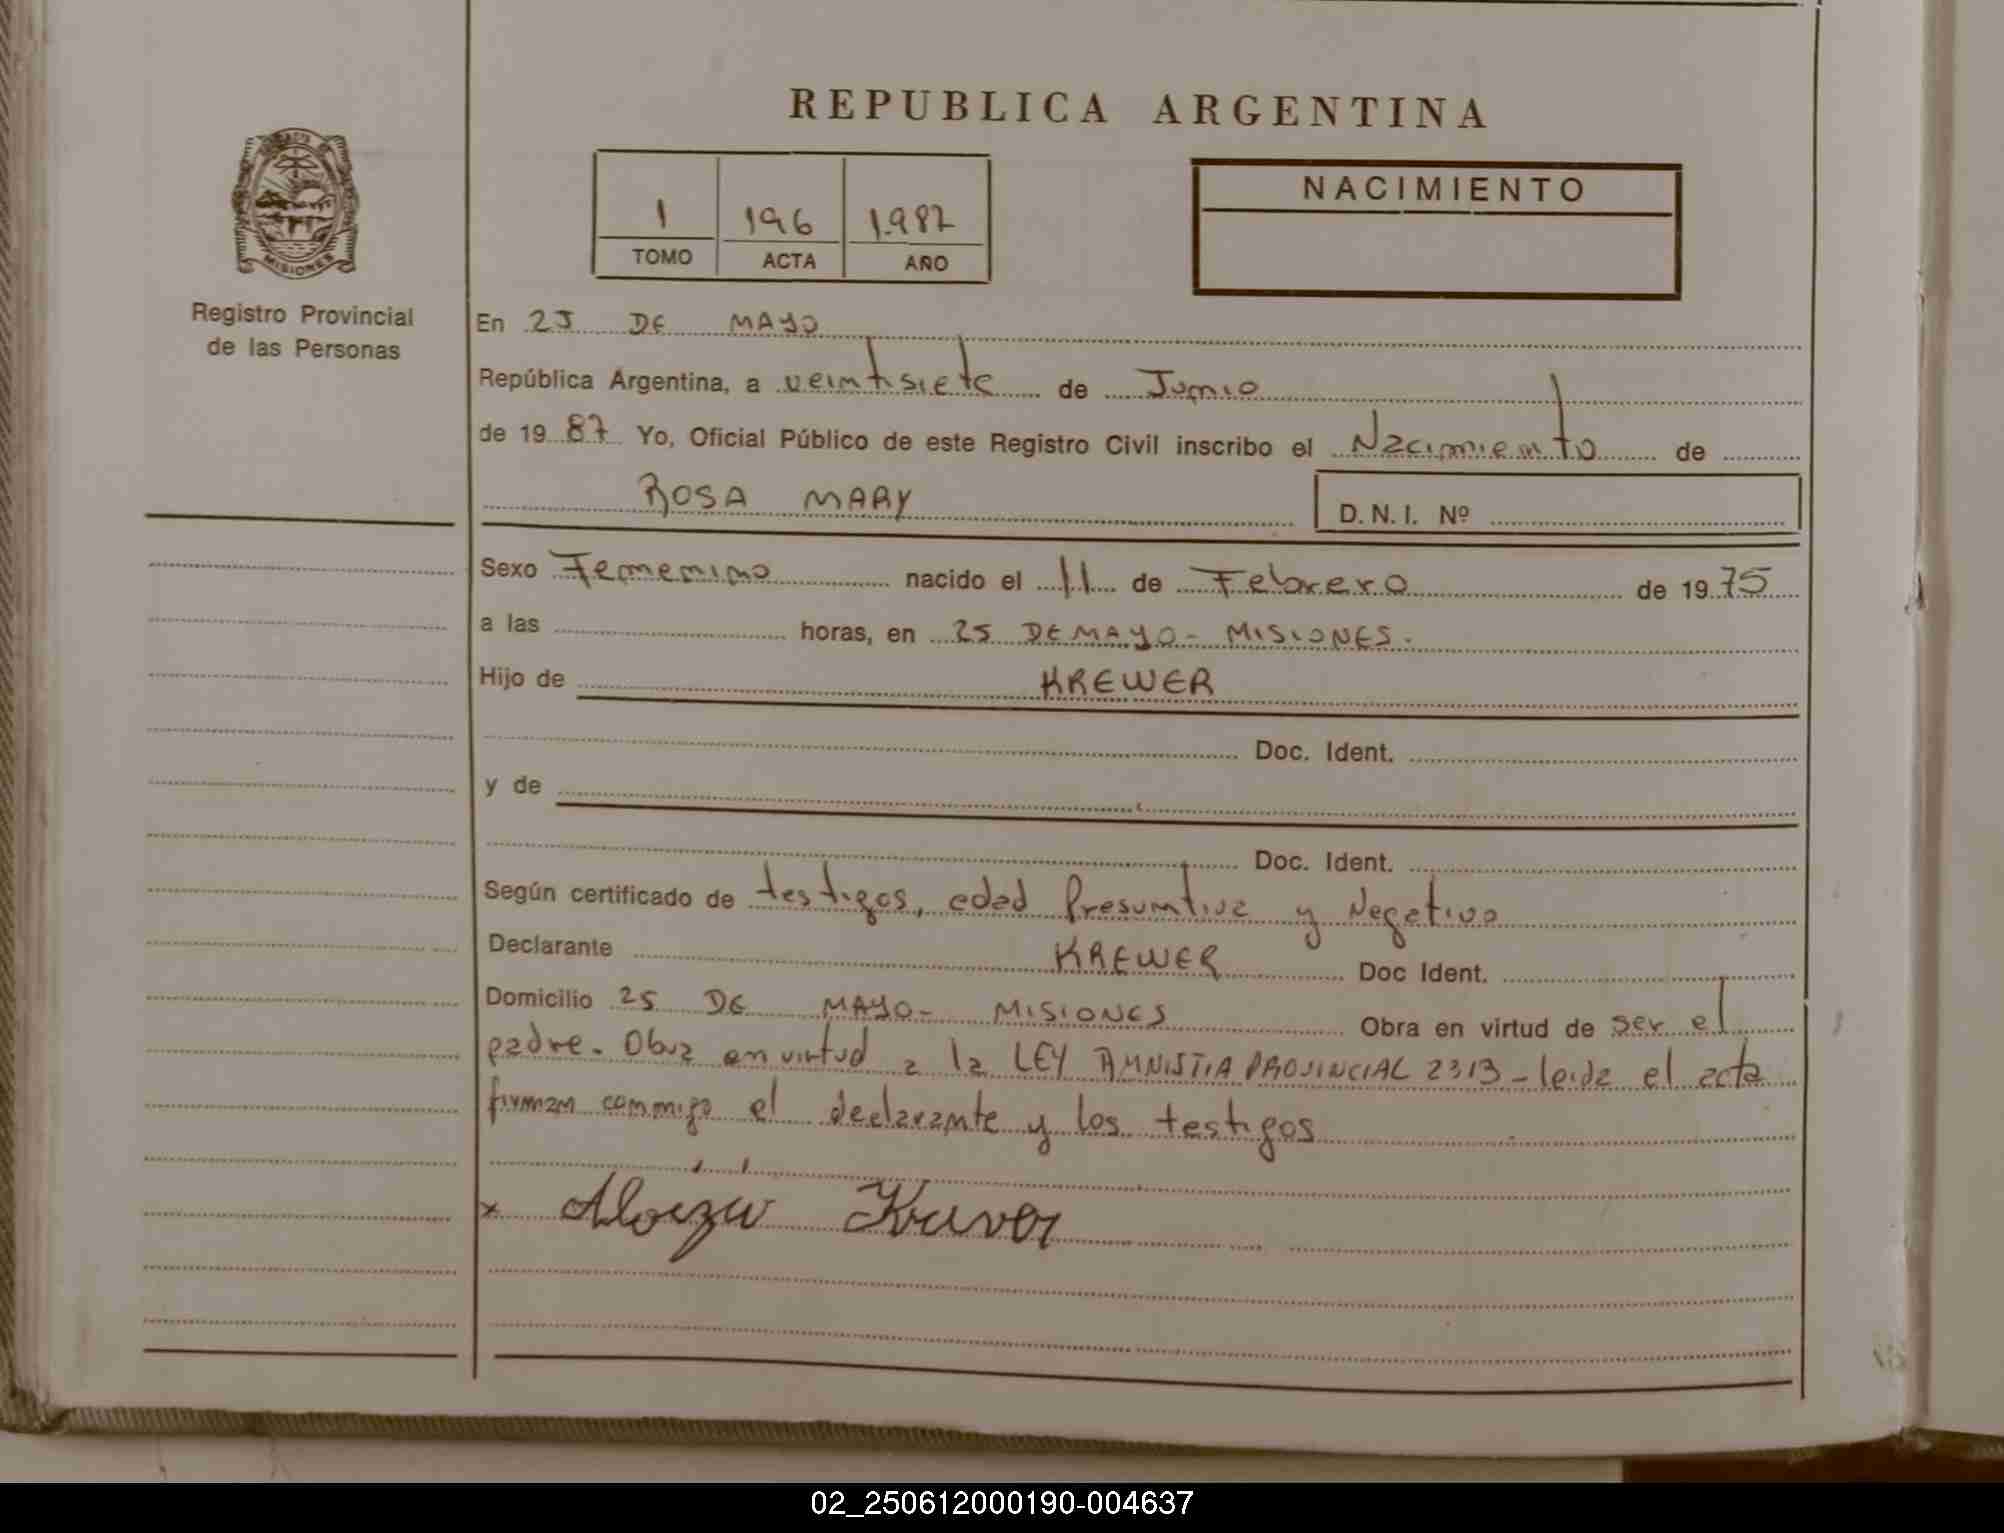 REPUBLICA ARGENTINA
MISIONES
Registro Provincial
de las Personas
1 196 1.987
TOMO ACTA AÑO
NACIMIENTO
En 25 DE MAYO
República Argentina, a veintisiete de Junio
de 19 87 Yo, Oficial Público de este Registro Civil inscribo el Nacimiento de
ROSA MARY D.N.I. Nº
Sexo Femenino nacido el 11 de Febrero de 19 75
a las horas, en 25 DE MAYO - MISIONES.
Hijo de KREWER
Doc. Ident.
y de
Doc. Ident.
Según certificado de testigos, edad Presuntiva y Negativo
Declarante KREWER Doc Ident.
Domicilio 25 DE MAYO - MISIONES Obra en virtud de ser el
padre. Obra en virtud a la LEY AMNISTIA PROVINCIAL 2313 - leida el acta
firman conmigo el declarante y los testigos
x
02_250612000190-004637